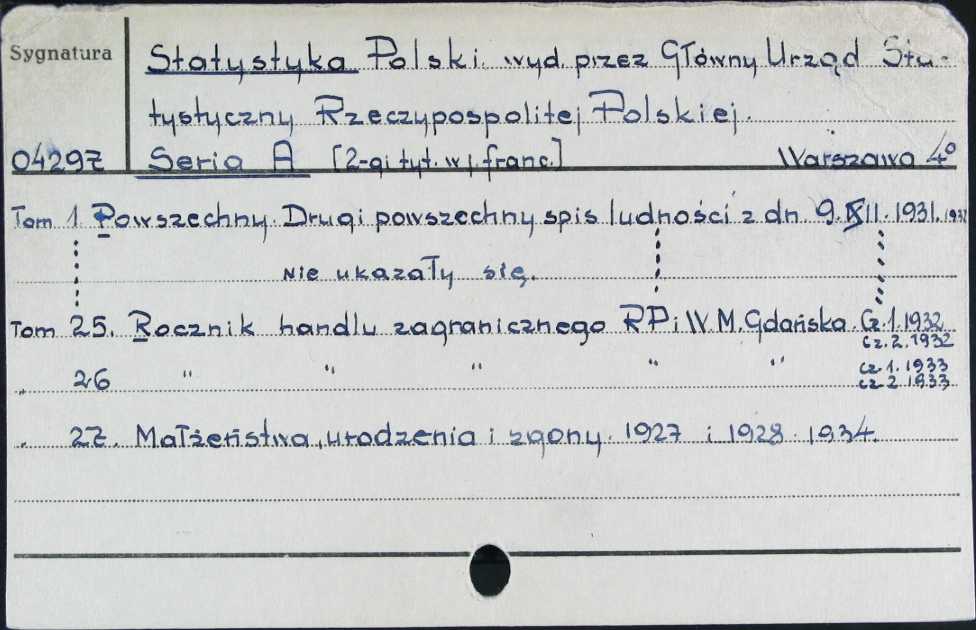 Sygnatura
Statystyka Polski. wyd. przez Główny Urząd Sta-
tystyczny Rzeczypospolitej Polskiej.
04297 Seria A [2-gi tyt. w j. franc.] Warszawa 4°
Tom 1. Powszechny. Drugi powszechny spis ludności z dn. 9.XII.1931.
nie ukazały się.
Tom 25. Rocznik handlu zagranicznego RP i W.M. Gdańska. Cz. 1. 1932
cz. 2. 1932
cz. 1. 1933
„ 26 " " " " " cz 2 1933
„ 27. Małżeństwa, urodzenia i zgony. 1927 i 1928. 1934.